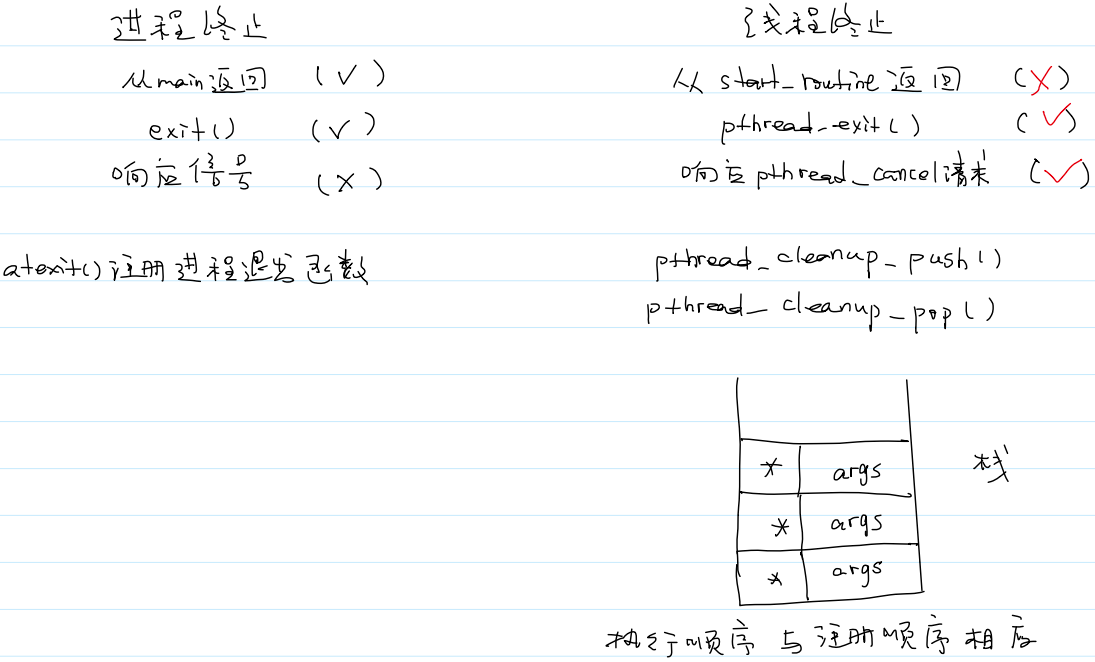 进程终止
从main返回 (√)
exit() (√)
响应信号 (×)
atexit()注册进程退出函数
线程终止
从 start_routine返回 (×)
pthread_exit() (√)
响应pthread_cancel请求 (√)
pthread_cleanup_push()
pthread_cleanup_pop()
* args
* args
* args
栈
执行顺序与注册顺序相反